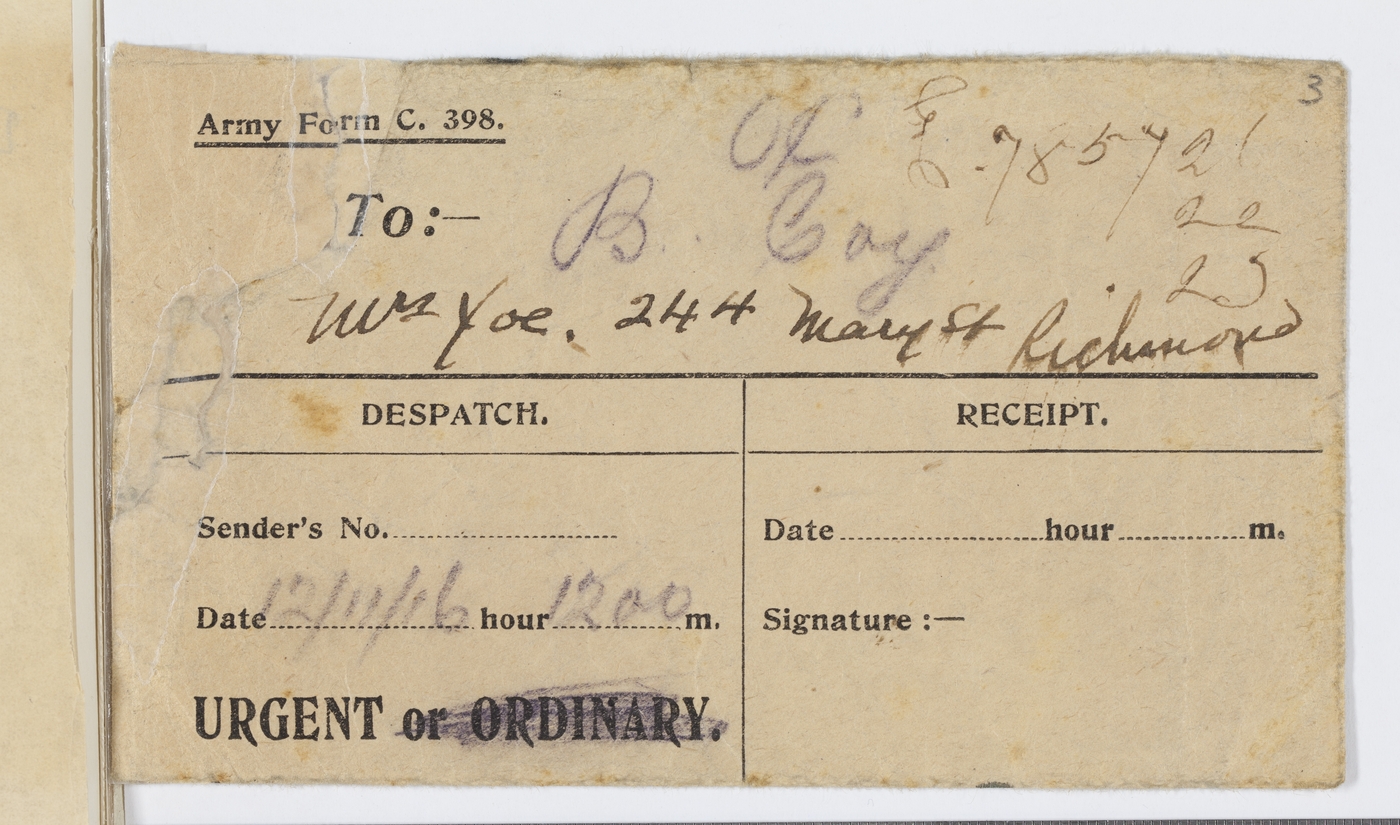 3
Army Form C. 398.
OC
785721
22
23
To:— B. Coy
Mrs Yoe. 244 Mary St Richmond
DESPATCH.
RECEIPT.
Sender's No.
Date hour m.
Date 12/11/16 hour 1200 m.
Signature :—
URGENT or ORDINARY.